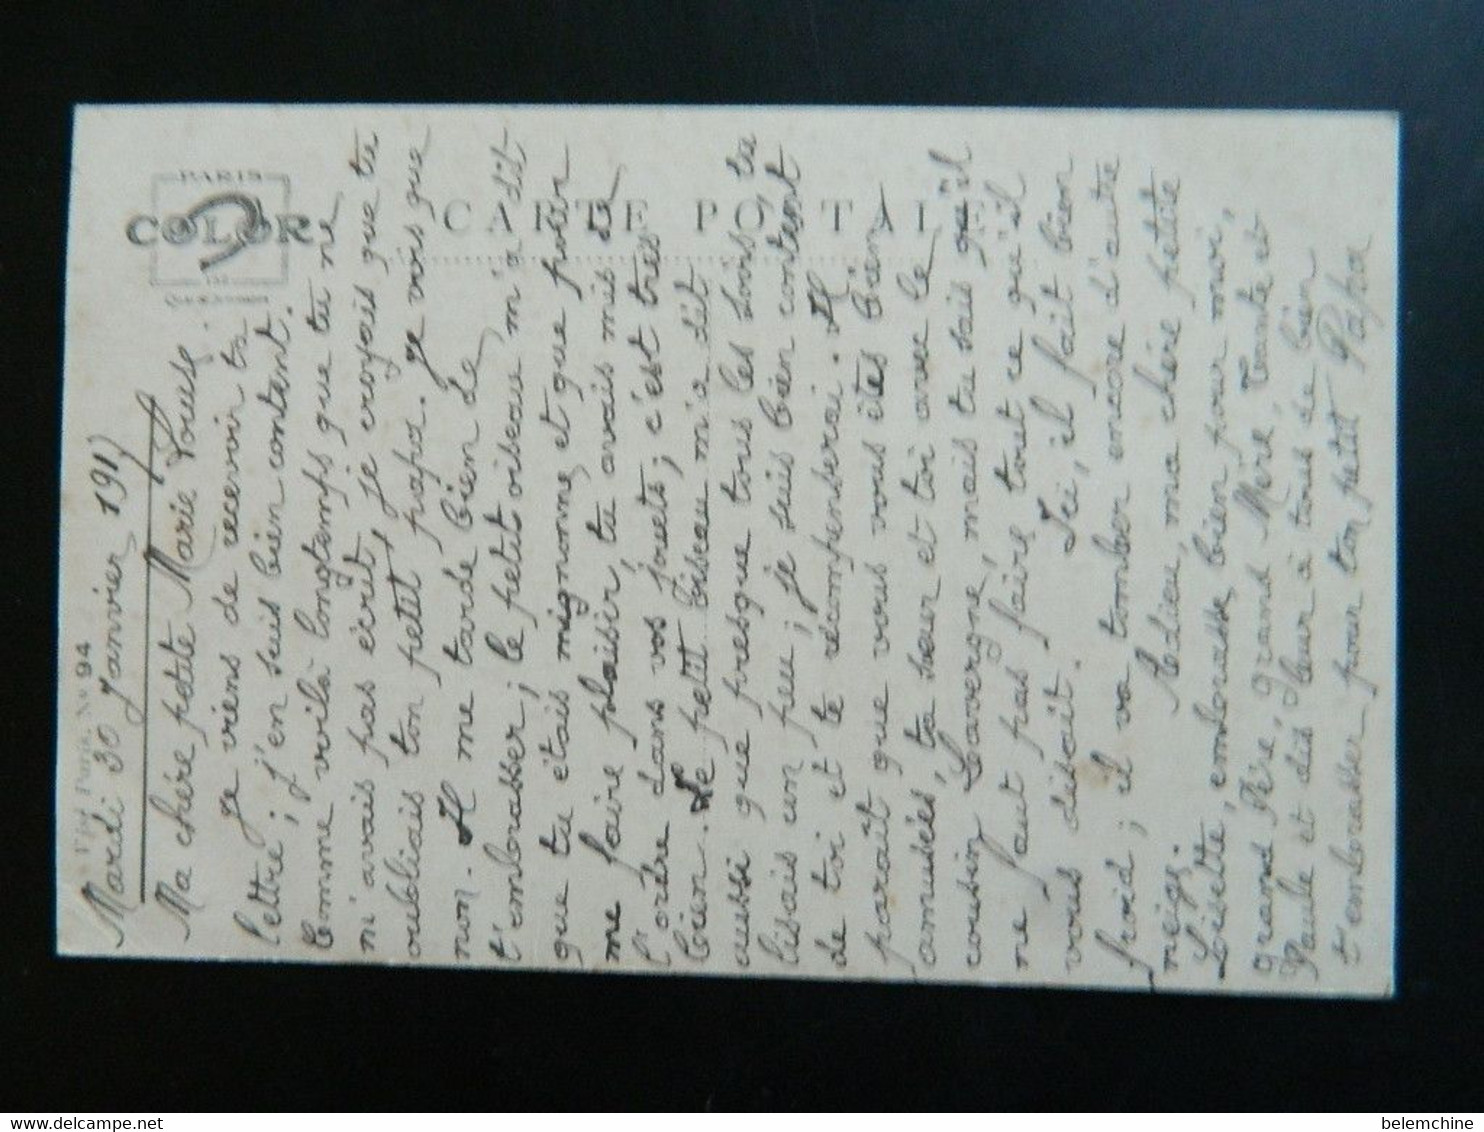 Mardi 30 Janvier 1917
Ma chère petite Marie Louise.
Je viens de recevoir ta
lettre ; j'en suis bien content.
Comme voilà longtemps que tu ne
m'avais pas écrit, je croyais que tu
oubliais ton petit papa. Je vois que
non. Il me tarde bien de
t'embrasser ; le petit oiseau m'a dit
que tu étais mignonne et que pour
me faire plaisir, tu avais mis de
l'ordre dans vos jouets ; c'est très
bien. Le petit Oiseau m'a dit
aussi que presque tous les soirs tu
lisais un peu ; je suis bien content
de toi et te récompenserai. Il
paraît que vous vous êtes bien
amusées, ta sœur et toi avec le
cousin Lavergne, mais tu sais qu'il
ne faut pas faire tout ce qu'il
vous disait. Ici, il fait bien
froid ; il va tomber encore d'autre
neige. Adieu, ma chère petite
Loisette, embrasse bien pour moi,
grand Père, grand Mère, Tante et
Paule et dis leur à tous de bien
t'embrasser pour ton petit Papa
PARIS
COLOR
CARTE POSTALE
Paris, No 94
belemchine